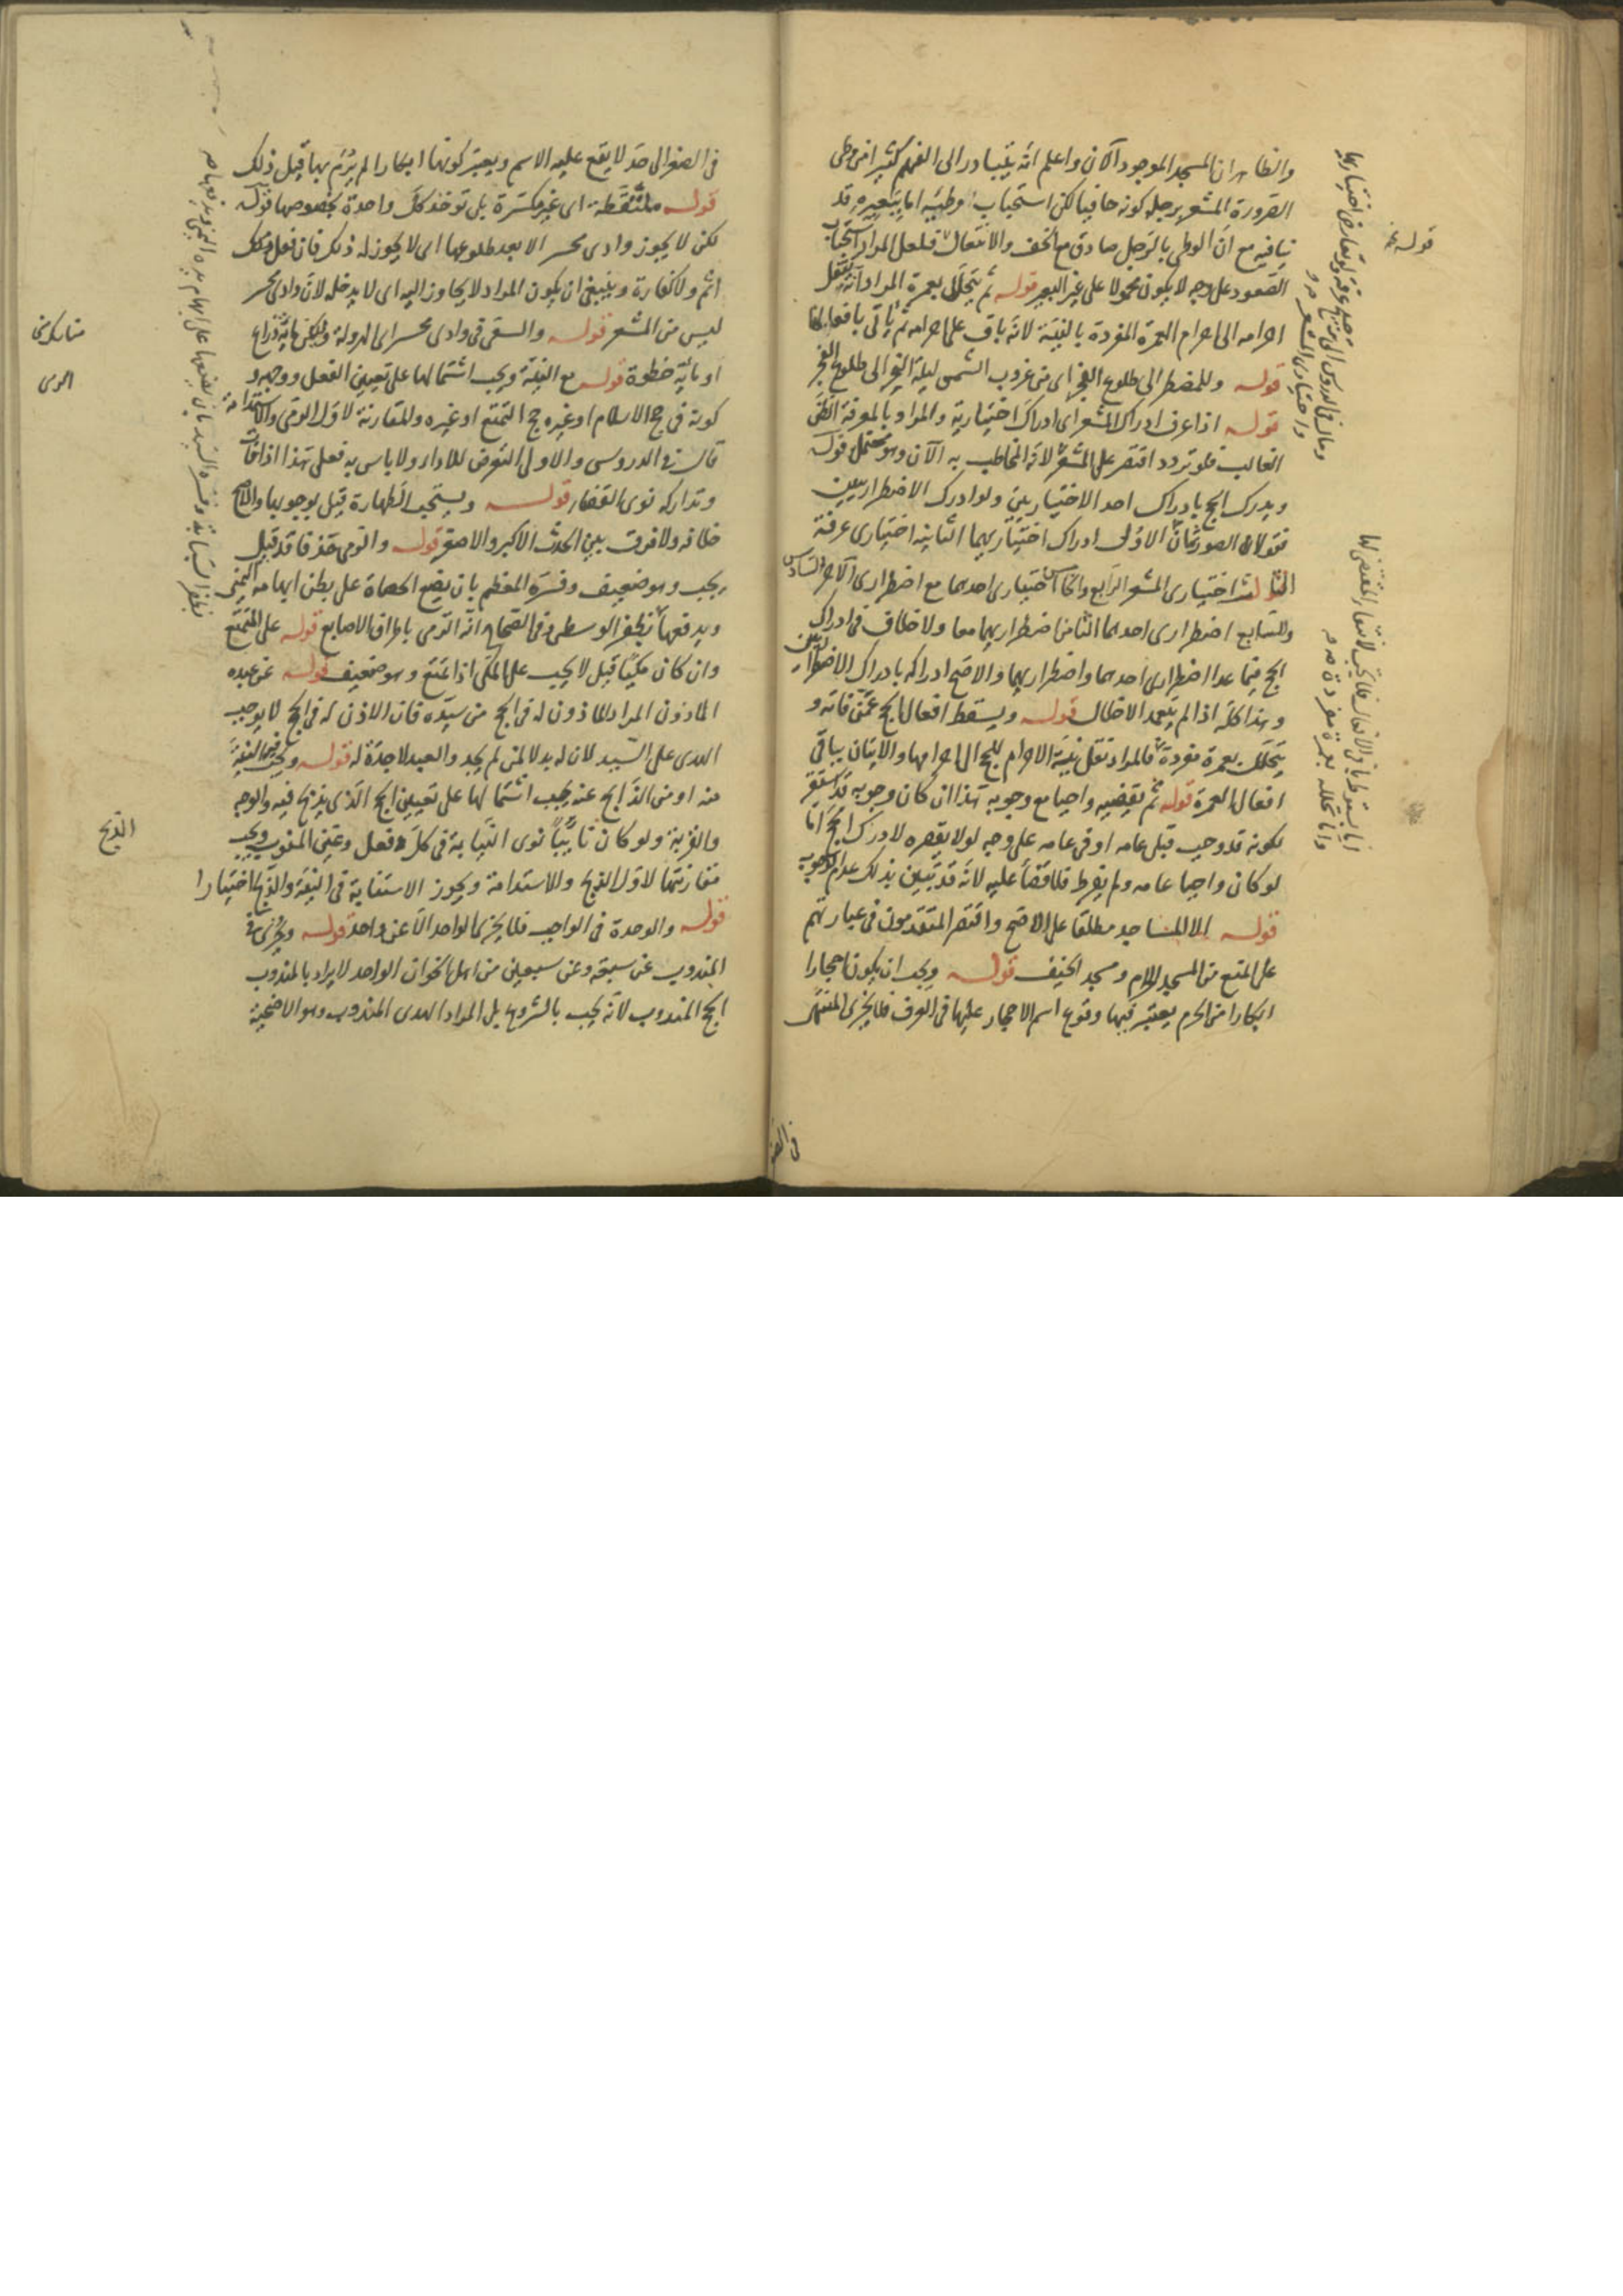 والظاهر ان المسجد الموجود الآن واعلم انه يتبادر الى الفهم كثيرا من وطى
الصرورة المشعر برجله كونه حافيا لكن استحباب وطيه اما ببعيره قد
ينافيه مع ان الوطى بالرجل صادق مع الخف والانتعال فلعل المراد استحباب
الصعود على وجه لا يكون محمولا على غير البعير قوله ثم يتحلل بعمرة المراد انه ينقل
احرامه الى احرام العمرة المفردة بالنية لانه باق على احرامه ثم ياتى بافعالها
قوله وللمضطر الى طلوع الفجر اى من غروب الشمس ليلة النحر الى طلوع الفجر
قوله اذا عرف ادراك المشعر اى ادراك اختياريه والمراد بالمعرفة الظن
الغالب فلو تردد اقتصر على المشعر لانه المخاطب به الآن وهو محتمل قوله
ويدرك الحج بادراك احد الاختياريين ولو ادرك الاضطراريين
فقولان الصور ثمان الاولى ادراك اختياريهما الثانية اختيارى عرفة
الثالث اختيارى المشعر الرابع والخامس اختيارى احدهما مع اضطرارى الآخر السادس
والسابع اضطرارى احدهما الثامن اضطراريهما معا ولا خلاف فى ادراك
الحج فيما عدا اضطرارى احدهما واضطراريهما والاصح ادراكه بادراك الاضطراريين
وهذا كله اذا لم يتعمد الاخلال قوله ويسقط افعال الحج عمن فاته و
يتحلل بعمرة مفردة فالمراد نقل نية الاحرام للحج الى احرامها والاتيان بباقى
افعال العمرة قوله ثم يقضيه واجبا مع وجوبه هذا ان كان وجوبه قد استقر
لكونه قد وجب قبل عامه او فى عامه على وجه لولا يقصره لادرك الحج اما
لو كان واجبا عامه ولم يفرط فلا قضاء عليه لانه قد تبين بذلك عدم الوجوب
قوله الا المساجد مطلقا على الاصح واقتصر المتقدمون فى عبارتهم
على المنع من المسجد الحرام ومسجد الخيف قوله ويجب ان يكون احجارا
ابكارا من الحرم يعتبر فيها وقوع اسم الاحجار عليها فى العرف فلا يجزى
فى الصغر
قوله
فى الصغر الى حد لا يقع عليه الاسم ويعتبر كونها ابكارا لم يرم بها قبل ذلك
قوله ملتقطة اى غير مكسرة بل توخذ كل واحدة بخصوصها قوله
لكن لا يجوز وادى محسر الا بعد طلوعها اى لا يجوز له ذلك فان فعل ذلك
اثم ولا كفارة وينبغى ان يكون المراد لا يتجاوز اليه اى لا يدخله لان وادى محسر
ليس من المشعر قوله والسعى فى وادى محسر اى الهرولة ويكفى ماية ذراع
او ماية خطوة قوله مع النية ويجب اشتمالها على تعيين الفعل ووجهه و
كونه فى حج الاسلام او غيره حج التمتع او غيره والمقارنة لاول الرمى والاستدامة
قال فى الدروس والاولى التعرض للاداء ولا باس به فعلى هذا اذا فات
وتداركه نوى القضاء قوله ويستحب الطهارة قيل بوجوبها والاصح
خلافه ولا فرق بين الحدث الاكبر والاصغر قوله والرمى خذفا قد قيل
يجب وهو ضعيف وفسره المعظم بان يضع الحصاة على بطن ابهامه اليمنى
ويدفعها بظفر الوسطى وفى الصحاح انه الرمى باطراف الاصابع قوله على المتمتع
وان كان مكيا قيل لا يجب على المكى اذا تمتع وهو ضعيف قوله عن عبده
الماذون المراد الماذون له فى الحج من سيده فان الاذن له فى الحج لا يوجب
الهدى على السيد لان له بدلا لمن لم يجد والعبد لا جدة له قوله ويجب فيها النية
منه او من الذابح عنه يجب اشتمالها على تعيين الحج الذى يذبح فيه والوجه
والقربة ولو كان نايبا نوى النيابة فى كل فعل وعين المنوب ويجب
مقارنتها لاول الذبح والاستدامة ويجوز الاستنابة فى النية والذبح اختيارا
قوله والوحدة فى الواجب فلا يجزى الواحد الا عن واحد قوله ويجزى
المندوب عن سبعة وعن سبعين من اهل الخوان الواحد لا يراد بالمندوب
الحج المندوب لانه يجب بالشروع بل المراد الهدى المندوب وهو الاضحية
مناسك منى
الرمى
الذبح